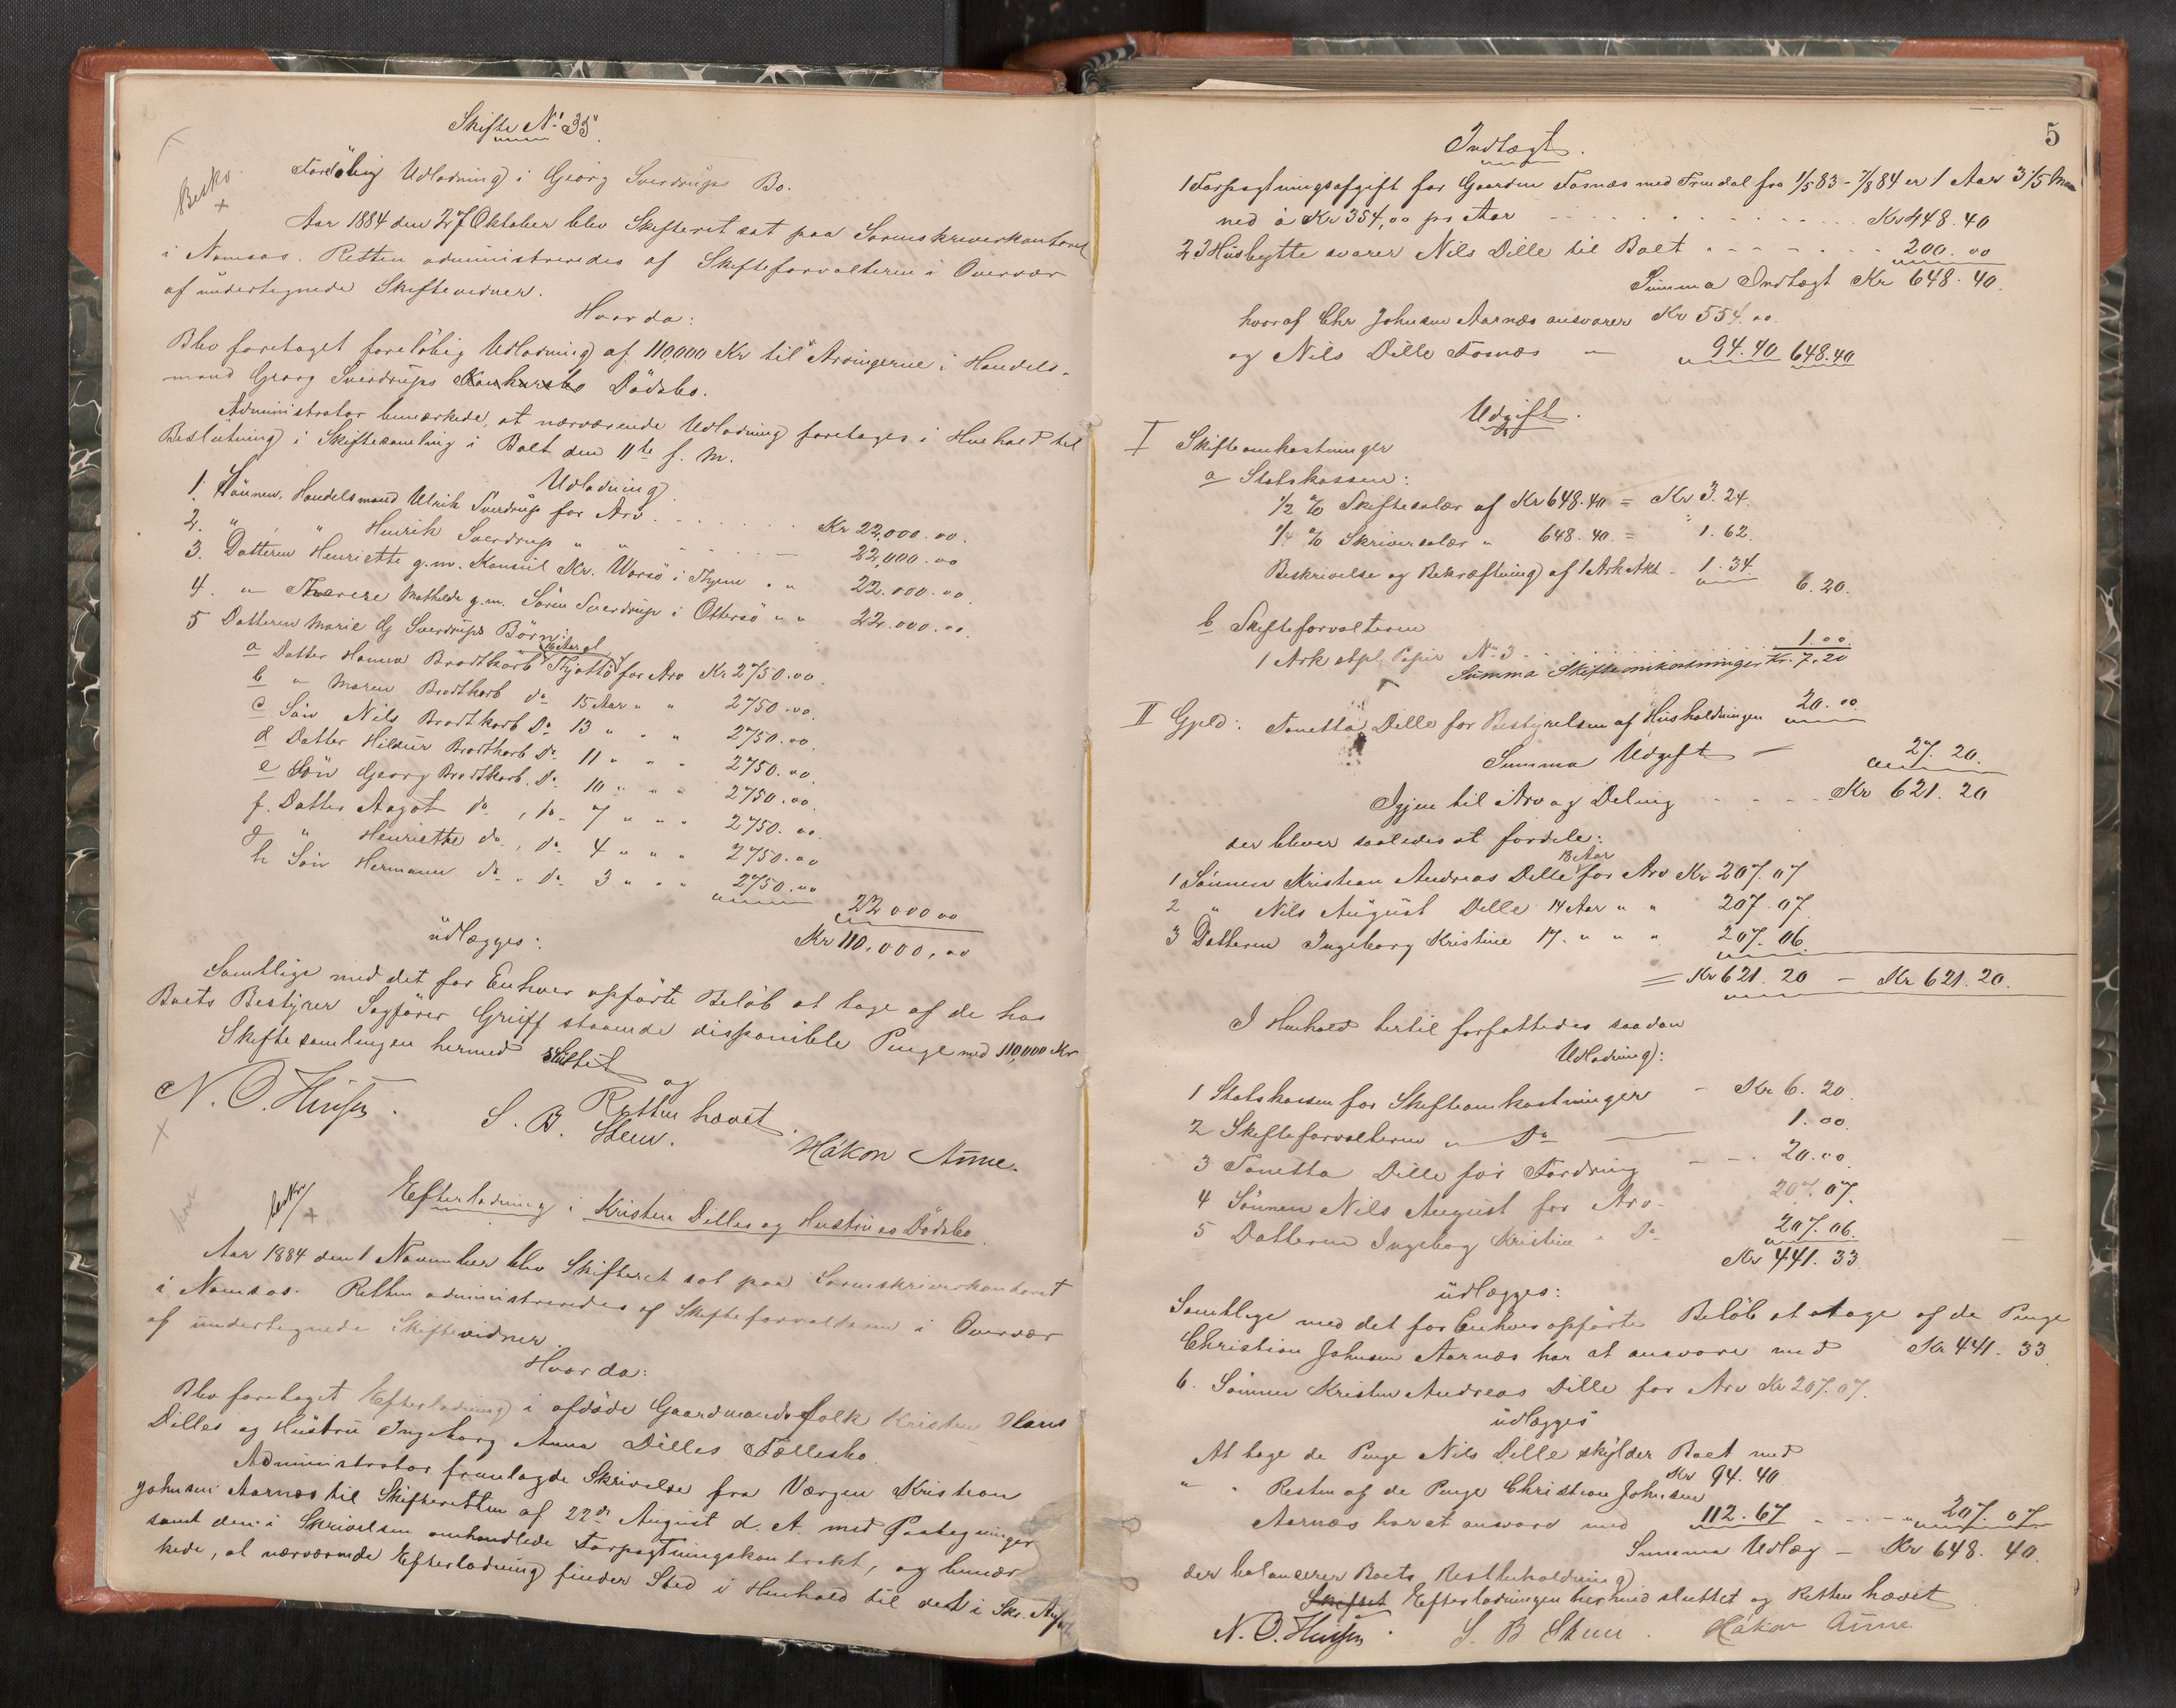 Skifte No 35.
Besko.
+
Foreløbig Udlodning i Georg Sverdrups Bo.
Aar 1884 den 27 Oktober blev Skifteret sat paa Sorenskriverkontoret
i Namsos. Retten administreredes af Skifteforvalteren i Overvær
af undertegnede Skiftevidner.
Hvorda:
Blev foretaget foreløbig Udlodning af 110,000 Kr til Arvingerne i Handels-
mand Georg Sverdrups Konkursbo Dödsbo.
Administrator bemærkede, at nærværende Udlodning foretages i Henhold til
Beslutning i Skiftesamling i Boet den 11te f. M.
Udlodning
1. Sönnen, Handelsmand Ulrik Sverdrup for Arv . . . Kr 22,000.00.
2. " , " Henrik Sverdrup " " - - - 22,000.00
3. Datteren Henriette g.m. Konsul Kr. Warsö i Thjem " " 22.000.00.
4. " Therese Mathilde g.m. Sören Sverdrup i Ottersö " " 22.000.00.
5 Datteren Marie Sverdrups Börn:
a Datter Hanna Brodtkorb Thjöttö 16 Aar gl for Arv Kr 2750.00.
b " Maren Brodtkorb do 15 Aar " " 2750.00.
c Sön Nils Brodtkorb Do 13 " " " 2750.00.
d Datter Hildur Brodtkorb Do 11 " " " 2750.00.
e Sön Georg Brodtkorb. Do 10 " " " 2750.00.
f. Datter Aagot do , do 7 " " " 2750.00.
g " Henriette do , do 4 " " " 2750.00
h Sön Hermann do " do 3 " " " 2750.00
22000 00
Kr 110,000,00
udlægges:
Samtlige med det for Enhver opførte Beløb at tage af de hos
Boets Bestyrer Sagfører Greiff staaende disponible Penge med 110,000 Kr
Skiftesamlingen hermed sluttet
og
Retten hævet.
S. B. Steen.
Håkon Aune.
+
Efterlodning i Kristen Dilles og Hustrues Dödsbo.
Aar 1884 den 1 November blev Skifteret sat paa Sorenskriverkontoret
i Namsos. Retten administreredes af Skifteforvalteren i Overvær
af undertegnede Skiftevidner.
Hvorda:
Blev foretaget Efterlodning i afdöde Gaardmandsfolk Kristen Olaus
Dilles og Hustru Ingeborg Anna Dilles Fællesbo.
Administrator fremlagde Skrivelse fra Værgen Kristian
Johnsen Aarnæs til Skifteretten af 22de August d. A. med Paategninger
samt den i Skrivelsen omhandlede Forpagtningskontrakt, og bemær-
kede, at nærværende Efterlodning finder Sted i Henhold til det i Skr.
5
Indtægt.
1 Forpagtningsafgift for Gaarden Fosnæs med Fremdal fra 1/5 83 - 7/8 84 er 1 Aar 3 1/5 Maa
ned à Kr 354,00 pr Aar - - - Kr 448.40
2 3 Husbytte svarer Nils Dille til Boet - - - 200.00
Summa Indtægt Kr 648.40.
hvoraf Chr Johnsen Aarnæs ansvarer Kr 554.00.
og Nils Dille Fosnæs " 94.40 648.40
Udgift.
I Skifteomkostninger
a Statskassen:
1/2 % Skiftesalær af Kr 648.40 = Kr 3.24.
1/4 % Skriversalær " 648.40. = " 1.62.
Beskrivelse og Bekræftning af 1 Ark Akt - 1.34. 6.20.
b Skifteforvalteren
1 Ark stpl. Papir No 3 - - - 1.00
Summa Skifteomkostninger Kr. 7.20
II Gjeld: Tonetta Dille for Bestyrelsen af Husholdningen 20.00
Summa Udgift = 27.20.
Igjen til Arv og Deling - - - Kr 621.20
der bliver saaledes at fordele:
1 Sönnen Kristian Andreas Dille 18 Aar for Arv Kr 207.07
2 " Nils August Dille 14 Aar " " 207.07
3 Datteren Ingeborg Kristine 17. " " " 207.06.
= Kr 621.20 - Kr 621.20.
I Henhold hertil forfattedes saadan
Udlodning:
1 Statskassen for Skifteomkostninger - Kr 6.20.
2 Skifteforvalteren " Do — 1.00.
3 Tonetta Dille for Fordring - - 20.00.
4 Sönnen Nils August for Arv - 207.07.
5 Datteren Ingeborg Kristine " Do 207.06.
Kr 441.33.
udlægges:
Samtlige med det for Enhver opførte Beløb at tage af de Penge
Christian Johnsen Aarnæs har at ansvare med Kr 441.33.
6. Sönnen Kristen Andreas Dille for Arv Kr 207.07.
udlægges
At tage de Penge Nils Dille skylder Boet med
Kr 94.40
" " Resten af de Penge Christian Johnsen
Aarnæs har at ansvare med 112.67 - - - " 207.07
Summa Udlæg - Kr 648.40.
der balancerer Boets Restbeholdning
Skiftet Efterlodningen hermed sluttet og Retten hævet
S B Steen. Håkon Aune.